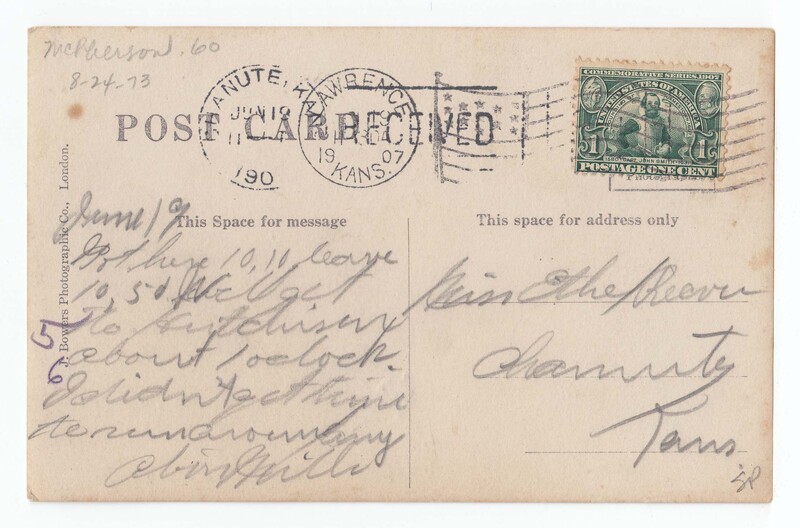 McPherson .60
8-24-73
CHANUTE, KAN
JUN 19
190
LAWRENCE
19 07
KANS.
RECEIVED
POST CARD
COMMEMORATIVE SERIES 1907
UNITED STATES OF AMERICA
1 1
1580 CAPT. JOHN SMITH 1631
POSTAGE ONE CENT
Photograph
J. Bowers Photographic Co., London.
5
6
This Space for message
This space for address only
June 19
Got here 10,10, leave
10,50, We get
to Hutchison
about 1 oclock.
I didn't get time
to run around any
Mills
Miss Ethel Reever
Chanute
Kans
SR